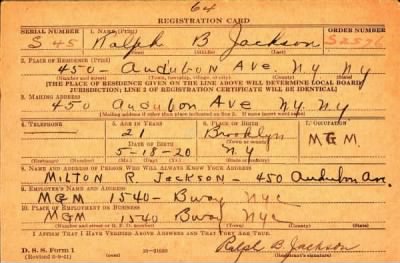 64
REGISTRATION CARD
SERIAL NUMBER 1. NAME (Print) ORDER NUMBER
S 45 Ralph B Jackson
(First) (Middle) (Last)
2. PLACE OF RESIDENCE (Print)
450 - Audubon Ave. N.Y. N.Y
(Number and street) (Town, township, village, or city) (County) (State)
[THE PLACE OF RESIDENCE GIVEN ON THE LINE ABOVE WILL DETERMINE LOCAL BOARD
JURISDICTION; LINE 2 OF REGISTRATION CERTIFICATE WILL BE IDENTICAL]
3. MAILING ADDRESS
450 Audubon Ave N.Y. N.Y.
[Mailing address if other than place indicated on line 2. If same insert word same]
4. TELEPHONE 5. AGE IN YEARS 6. PLACE OF BIRTH 7. OCCUPATION
21 Brooklyn
DATE OF BIRTH (Town or county) M.G.M.
5-18-20 N.Y.
(Exchange) (Number) (Mo.) (Day) (Yr.) (State or country)
8. NAME AND ADDRESS OF PERSON WHO WILL ALWAYS KNOW YOUR ADDRESS
MILTON R. JACKSON - 450 Audubon Ave.
9. EMPLOYER'S NAME AND ADDRESS
MGM 1540 - Bway NYC
10. PLACE OF EMPLOYMENT OR BUSINESS
MGM 1540 Bway NYC
(Number and street or R. F. D. number) (Town) (County) (State)
I AFFIRM THAT I HAVE VERIFIED ABOVE ANSWERS AND THAT THEY ARE TRUE.
D. S. S. Form 1 Ralph B. Jackson
(Registrant's signature)